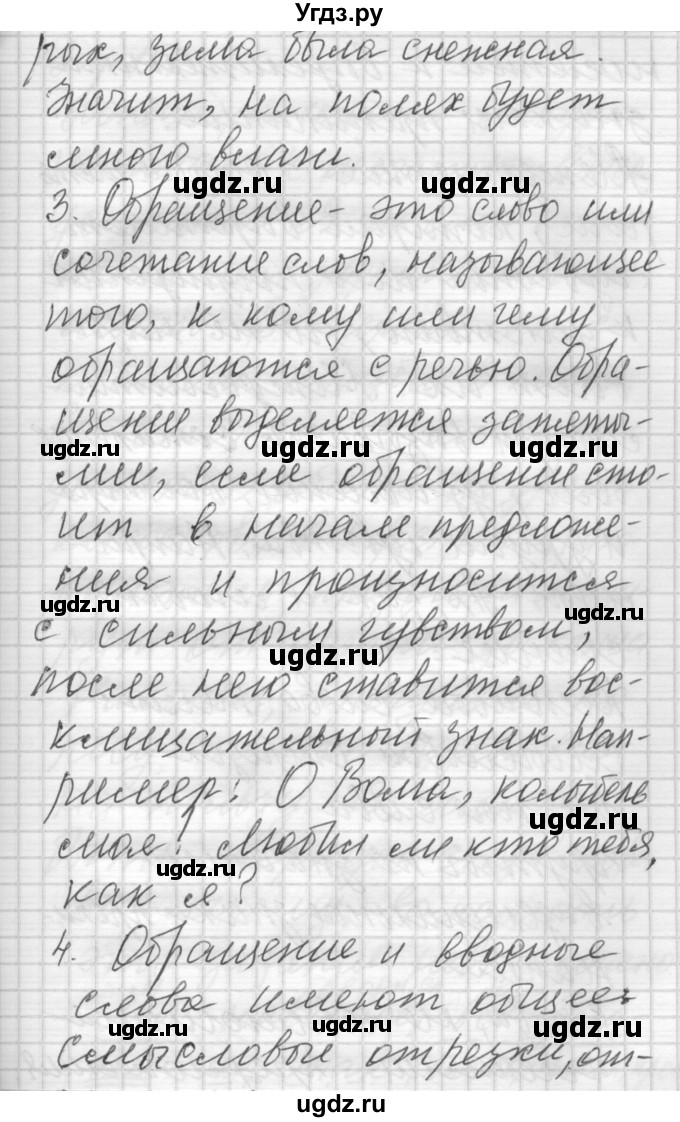 Угдз.ру
рых, зима была снежная.
Значит, на полях будет
много влаги.
ugdz.ru ugdz.ru
3. Обращение - это слово или
сочетание слов, называющее
того, к кому или чему
обращаются с речью. Обра-
щение выделяется запяты-
ugdz.ru ugdz.ru ugdz.ru
ми, если обращение сто-
ит в начале предложе-
ния и произносится
ugdz.ru ugdz.ru
с сильным чувством,
ugdz.ru
после него ставится вос-
клицательный знак. Нап-
ример: О Волга, колыбель
ugdz.ru
моя! Любил ли кто тебя,
ugdz.ru
как я?
4. Обращение и вводные
слова имеют общее:
ugdz.ru ugdz.ru ugdz.ru
смысловые отрезки, от-
ugdz.ru